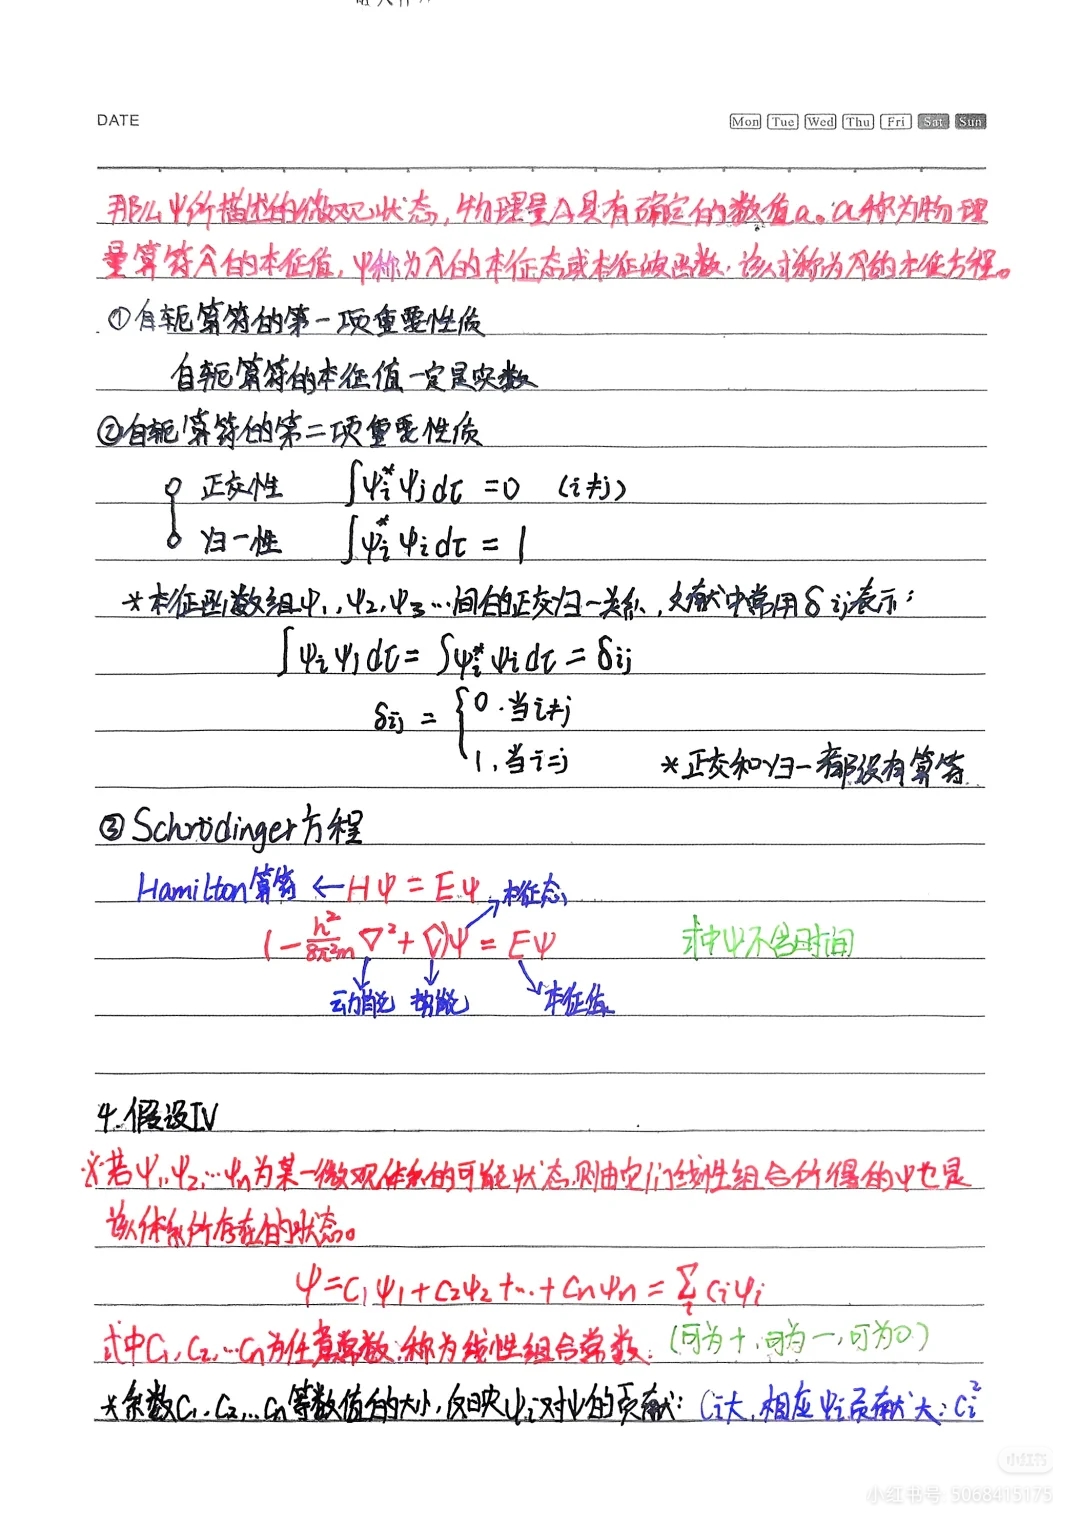 DATE
Mon Tue Wed Thu Fri Sat Sun
那么ψ所描述的微观状态,物理量A具有确定的数值a。a称为物理
量算符Â的本征值,ψ称为Â的本征态或本征波函数,该式称为Â的本征方程。
①自轭算符的第一项重要性质
自轭算符的本征值一定是实数
②自轭算符的第二项重要性质
正交性 ∫ψi*ψjdτ=0 (i≠j)
归一性 ∫ψi*ψidτ=1
*本征函数组ψ1,ψ2,ψ3…间的正交归一关系,文献中常用δij表示:
∫ψiψjdτ=∫ψi*ψidτ=δij
δij={0.当i≠j
1,当i=j *正交和归一都没有算符
③Schrödinger方程
Hamilton算符←Hψ=Eψ 本征态
(-h²/8π²m ∇²+V̂)ψ=Eψ 式中ψ不含时间
动能 势能 本征值
4.假设IV
※若ψ1,ψ2,…ψn为某一微观体系的可能状态,则由它们线性组合所得的ψ也是
该体系所存在的状态。
ψ=c1ψ1+c2ψ2+…+cnψn=∑i ciψi
式中c1,c2,…cn为任意常数,称为线性组合常数. (可为+,可为-,可为0)
*系数c1,c2,…cn等数值的大小,反映ψi对ψ的贡献: ci大,相应ψi贡献大:ci²
小红书
小红书号: 5068415175